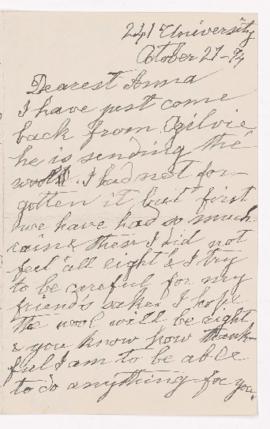 241 University
October 27-94
Dearest Anna
I have just come
back from Ogilvie
he is sending the
wool. I had not for-
gotten it, but first
we have had so much
rain & then I did not
feel all right & I try
to be careful for my
friends sakes. I hope
the wool will be right
& you know how thank-
ful I am to be able
to do anything for you